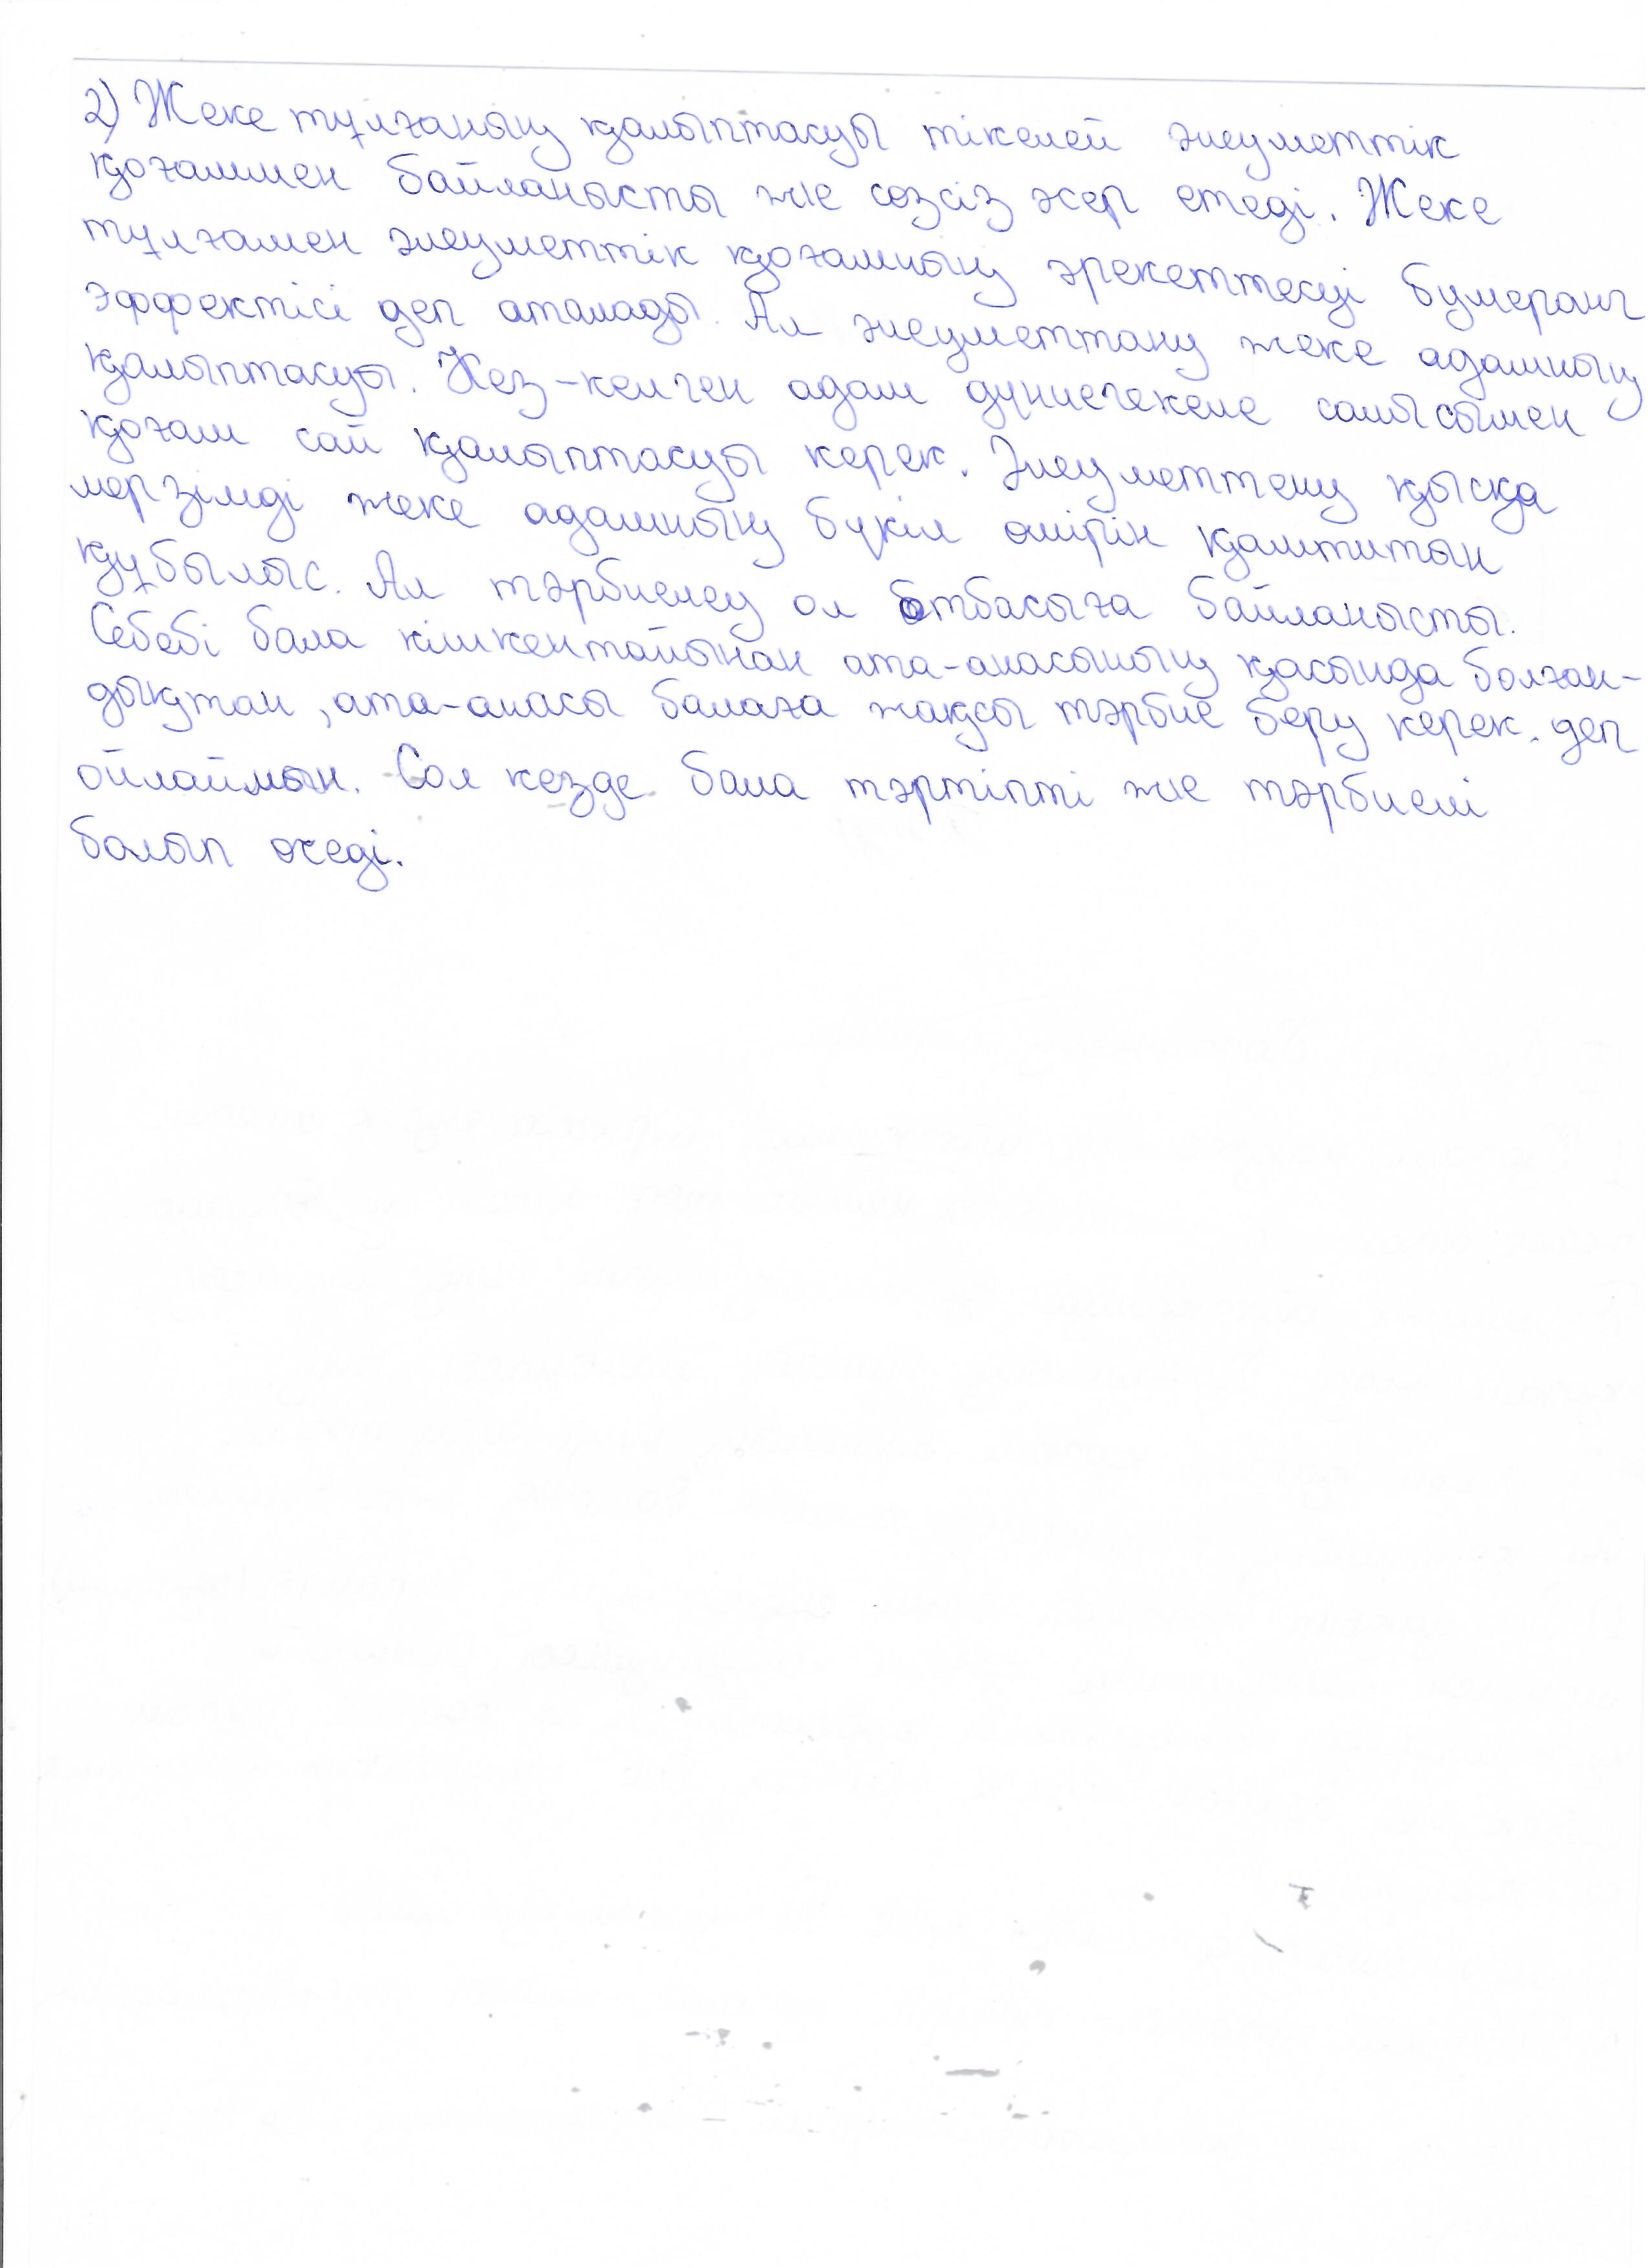 2) Жеке тұлғаның қалыптасуы тікелей әлеуметтік
қоғаммен байланысты және сөзсіз әсер етеді. Жеке
тұлғамен әлеуметтік қоғамның әрекеттесуі бумеранг
эффектісі деп аталады. Ал әлеуметтану жеке адамның
қалыптасуы. Кез-келген адам дүниегекеле салысымен
қоғам сай қалыптасуы керек. Әлеуметтену қысқа
мерзімді жеке адамның бүкіл өмірін қамтитын
құбылыс. Ал тәрбиелеу ол отбасыға байланысты.
Себебі бала кішкентайынан ата-анасының қасында болған-
дықтан, ата-анасы балаға жақсы тәрбие беру керек. деп
ойлаймын. Сол кезде бала тәртіпті және тәрбиелі
болып өседі.